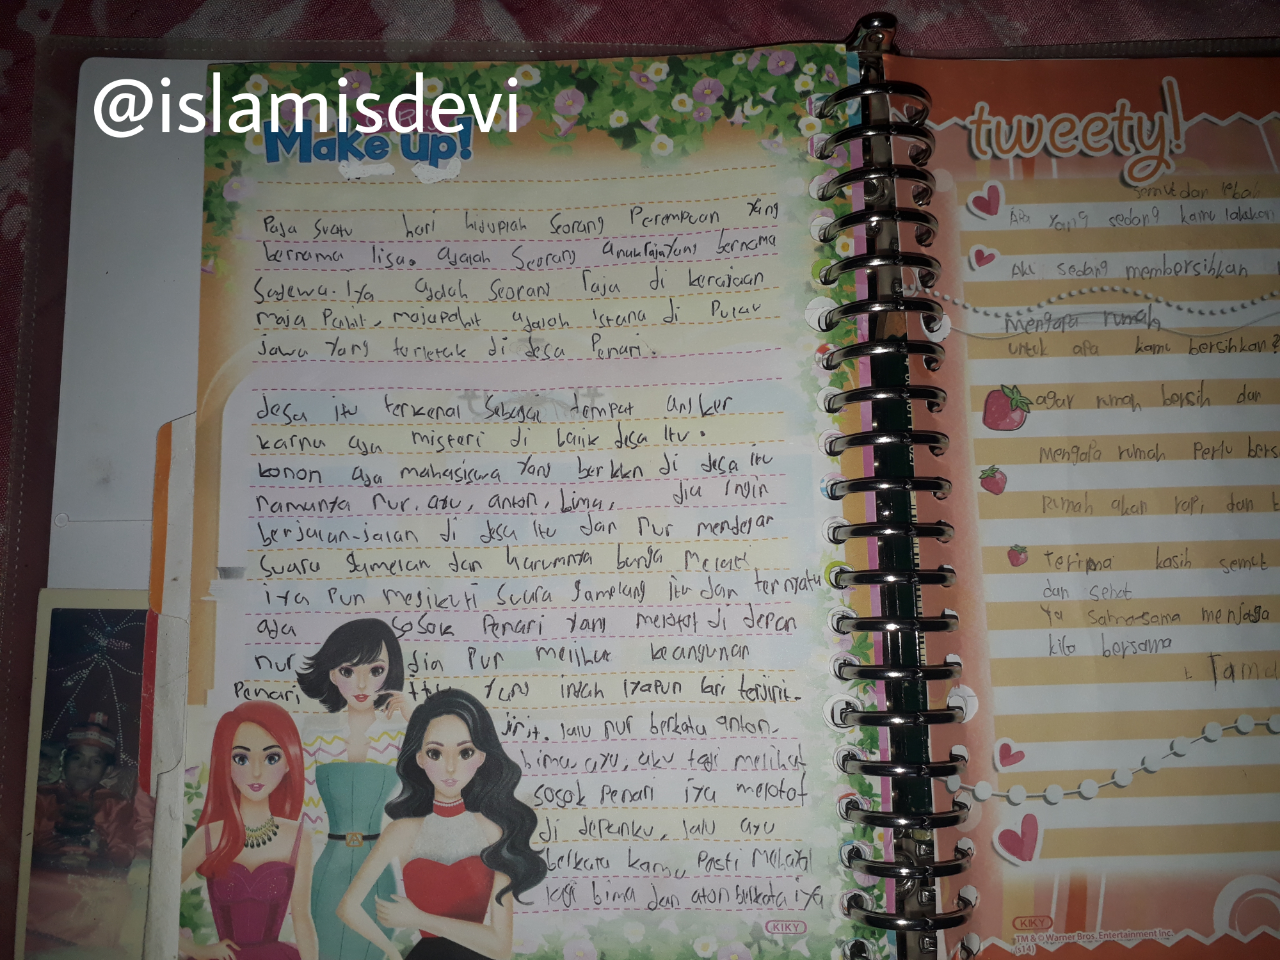 @islamisdevi
Make up!
Pada suatu hari hiduplah seorang Perempuan yang
bernama lisa. adalah seorang anak raja yang bernama
Sadewa. iya adalah seorang raja di kerajaan
maja Pahit, majapahit adalah istana di Pulau
jawa yang terletak di desa Penari.
desa itu terkenal sebagai tempat angker
karna ada misteri di balik desa itu.
konon ada mahasiswa yang berkkn di desa itu
namanya nur, ayu, anton, bima, dia ingin
berjalan-jalan di desa itu dan nur mendegar
suara gamelan dan harumnya bunga melati
iya pun megikuti suara gamelang itu dan ternyata
ada sosok Penari yang melotot di depan
nur dia pun melihat keangunan
Penari yang indah iyapun lari terjirit-
jirit. lalu nur berkata anton,
bima, ayu, aku tadi melihat
sosok penari iya melotot
di depanku, lalu ayu
berkata kamu pasti
lagi bima dan aton berkata iya
KIKY
tweety!
semut dan
Apa yang sedang kamu lakukan
Aku sedang membersihkan
mengapa rumah
untuk apa kamu bersihkan?
agar rumah bersih dan
Mengapa rumah perlu bers
Rumah akan rapi, dan
Terima kasih semut
dan sehat
Ya sama-sama menjaga
kita bersama
Tama
KIKY
TM & © Warner Bros. Entertainment Inc.
(s14)